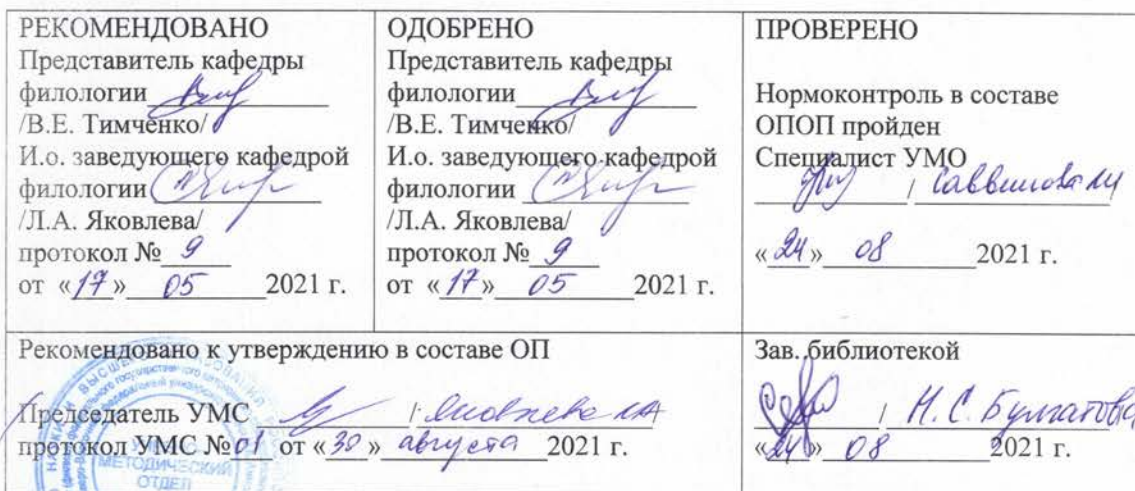 РЕКОМЕНДОВАНО
Представитель кафедры
филологии
/В.Е. Тимченко/
И.о. заведующего кафедрой
филологии
/Л.А. Яковлева/
протокол № 9
от «17» 05 2021 г.
ОДОБРЕНО
Представитель кафедры
филологии
/В.Е. Тимченко/
И.о. заведующего кафедрой
филологии
/Л.А. Яковлева/
протокол № 9
от «17» 05 2021 г.
ПРОВЕРЕНО
Нормоконтроль в составе
ОПОП пройден
Специалист УМО
/
«24» 08 2021 г.
Рекомендовано к утверждению в составе ОП
Председатель УМС / Яковлева ЛА
протокол УМС № 01 от «30» августа 2021 г.
МЕТОДИЧЕСКИЙ
ОТДЕЛ
Зав. библиотекой
/ Н.С. Булгатова
«24» 08 2021 г.